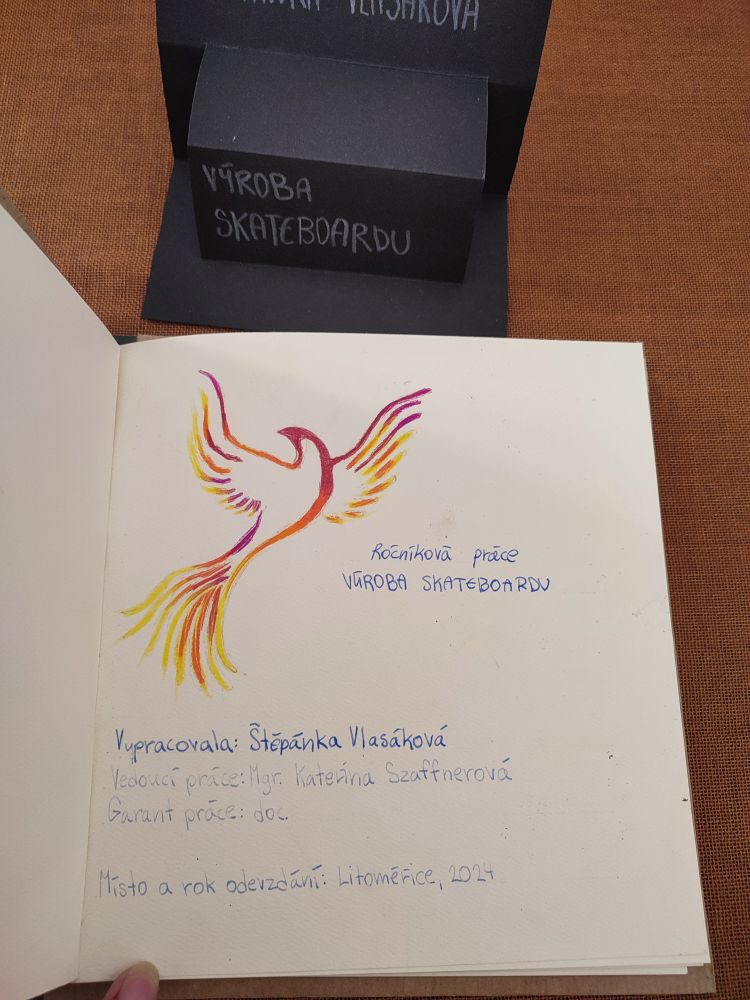 VLASÁKOVÁ
VÝROBA
SKATEBOARDU
Ročníková práce
VÝROBA SKATEBOARDU
Vypracovala: Štěpánka Vlasáková
Vedoucí práce: Mgr. Kateřina Szaffnerová
Garant práce: doc.
Místo a rok odevzdání: Litoměřice, 2024